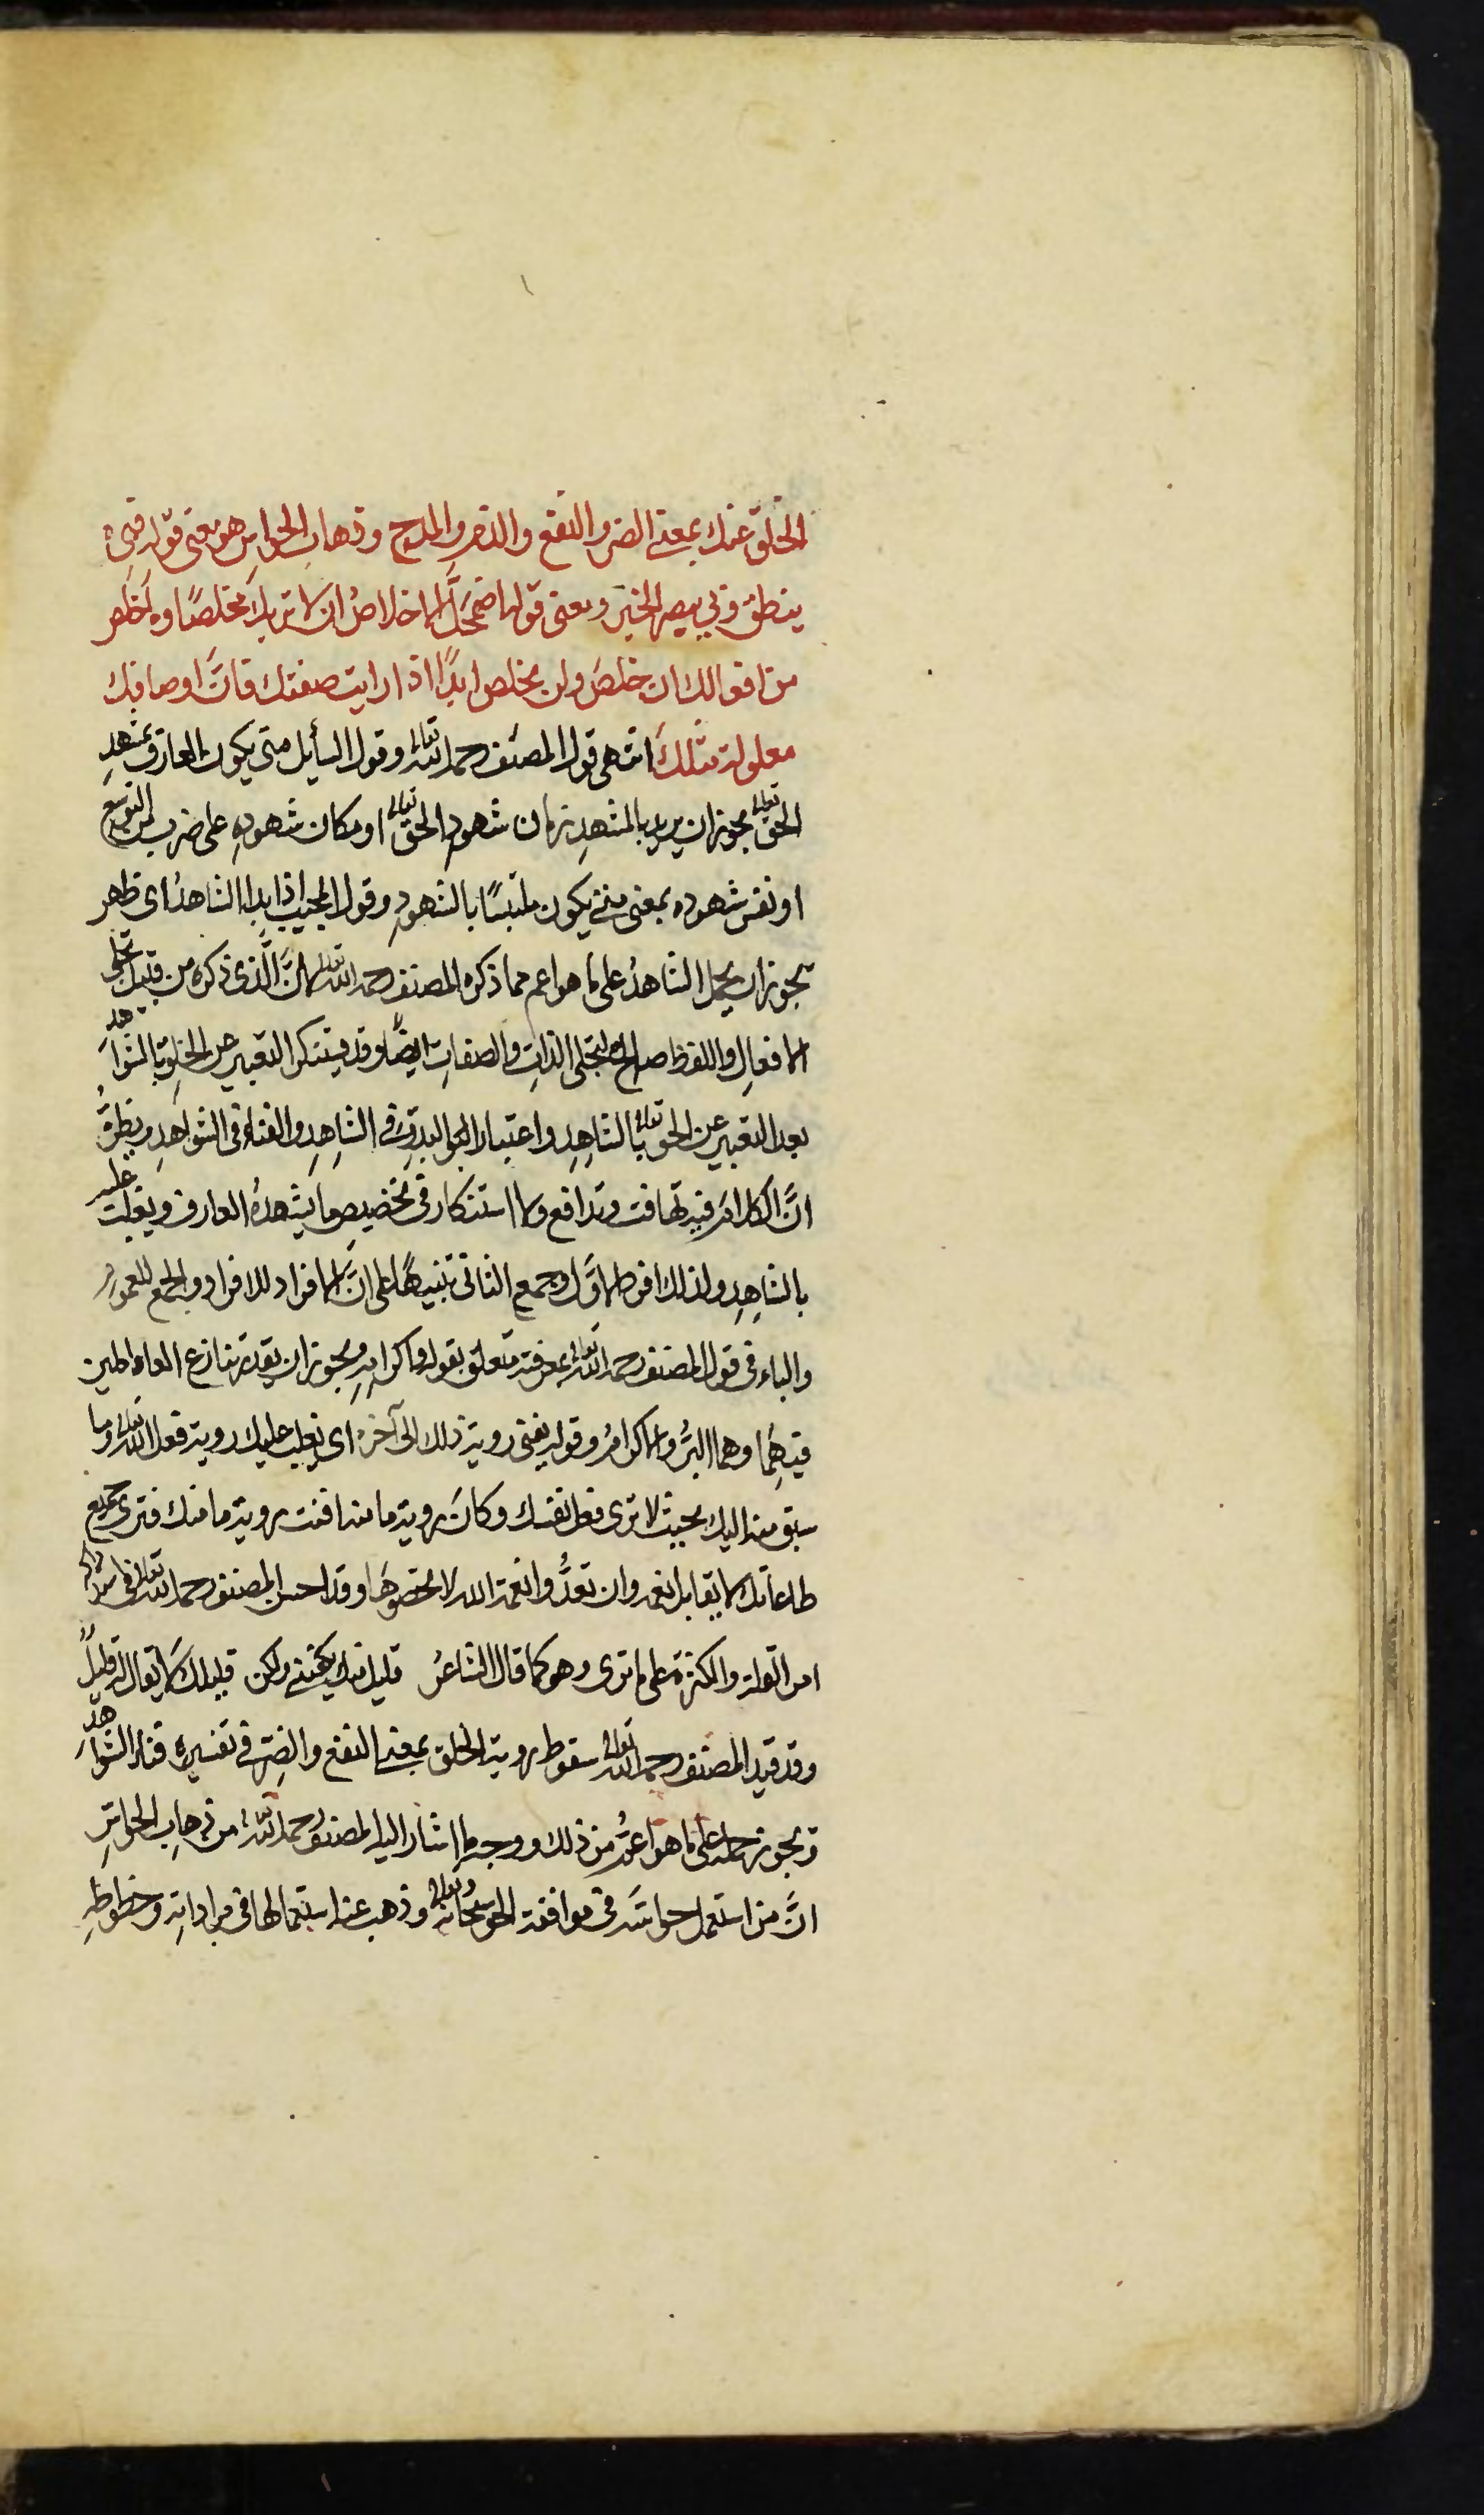 الخلق عنك بمعنى الضر والنفع والذم والمدح وذهاب الحواس هو معنى قوله فبي
ينطق وبي يبصر الخبر ومعنى قوله اضمحل الاخلاص ان لا تراك مخلصا وما خلص
من افعالك ان خلص ولن يخلص ابدا اذا رايت صفتك فان اوصافك
معلولة مثلك انتهى قول المصنف رحمه الله تعالى وقول السائل متى يكون العارف بمشهد
الحق تعالى يجوز ان يريد بالمشهد زمان شهود الحق تعالى او مكان شهوده على ضرب من التوسع
او نفس شهوده بمعنى متى يكون ملتبسا بالشهود وقول المجيب اذا بدا الشاهد اى ظهر
يجوز ان يحمل الشاهد على ما هو اعم مما ذكره المصنف رحمه الله تعالى لان الذى ذكره من قبيل تجلى
الافعال واللفظ صالح لتجلى الذات والصفات ايضا وقد يستنكر التعبير عن الخلق بالشواهد
بعد التعبير عن الحق تعالى بالشاهد واعتبار البدو فى الشاهد والفناء فى الشواهد ويظن
ان الكلام فيه تهافت وتدافع ولا استنكار فى تخصيص ما يشهده العارف ويغلب عليه
بالشاهد ولذلك افرد الاول وجمع الثانى تنبيها على ان الافراد للافراد والجمع للعموم
والباء فى قول المصنف رحمه الله تعالى بمعرفته متعلق بقوله واكرامه ويجوز ان يقدر تنازع العاملين
فيهما وهما البر والاكرام وقوله يفنى روية ذلك الى آخره اى يغلب عليك روية فعل الله تعالى وما
سبق منه اليك بحيث لا ترى فعل نفسك وكان روية ما منه افنت روية ما منك فترى جميع
طاعاتك لا يقابل نعمه وان تعدوا نعمة الله لا تحصوها وقد احسن المصنف رحمه الله تعالى فى
امر القلة والكثرة على ما ترى وهو كما قال الشاعر قليل منك يكفينى ولكن قليلك لا يقال له قليل
وقد قيد المصنف رحمه الله تعالى سقوط روية الخلق بمعنى النفع والضر فى تفسيره فناء الشواهد
ويجوز حمله على ما هو اعم من ذلك ووجه ما اشار اليه المصنف رحمه الله تعالى من ذهاب الحواس
ان من استعمل حواسه فى موافقة الحق سبحانه وتعالى وذهب عنه استعمالها فى مراداته وحظوظه